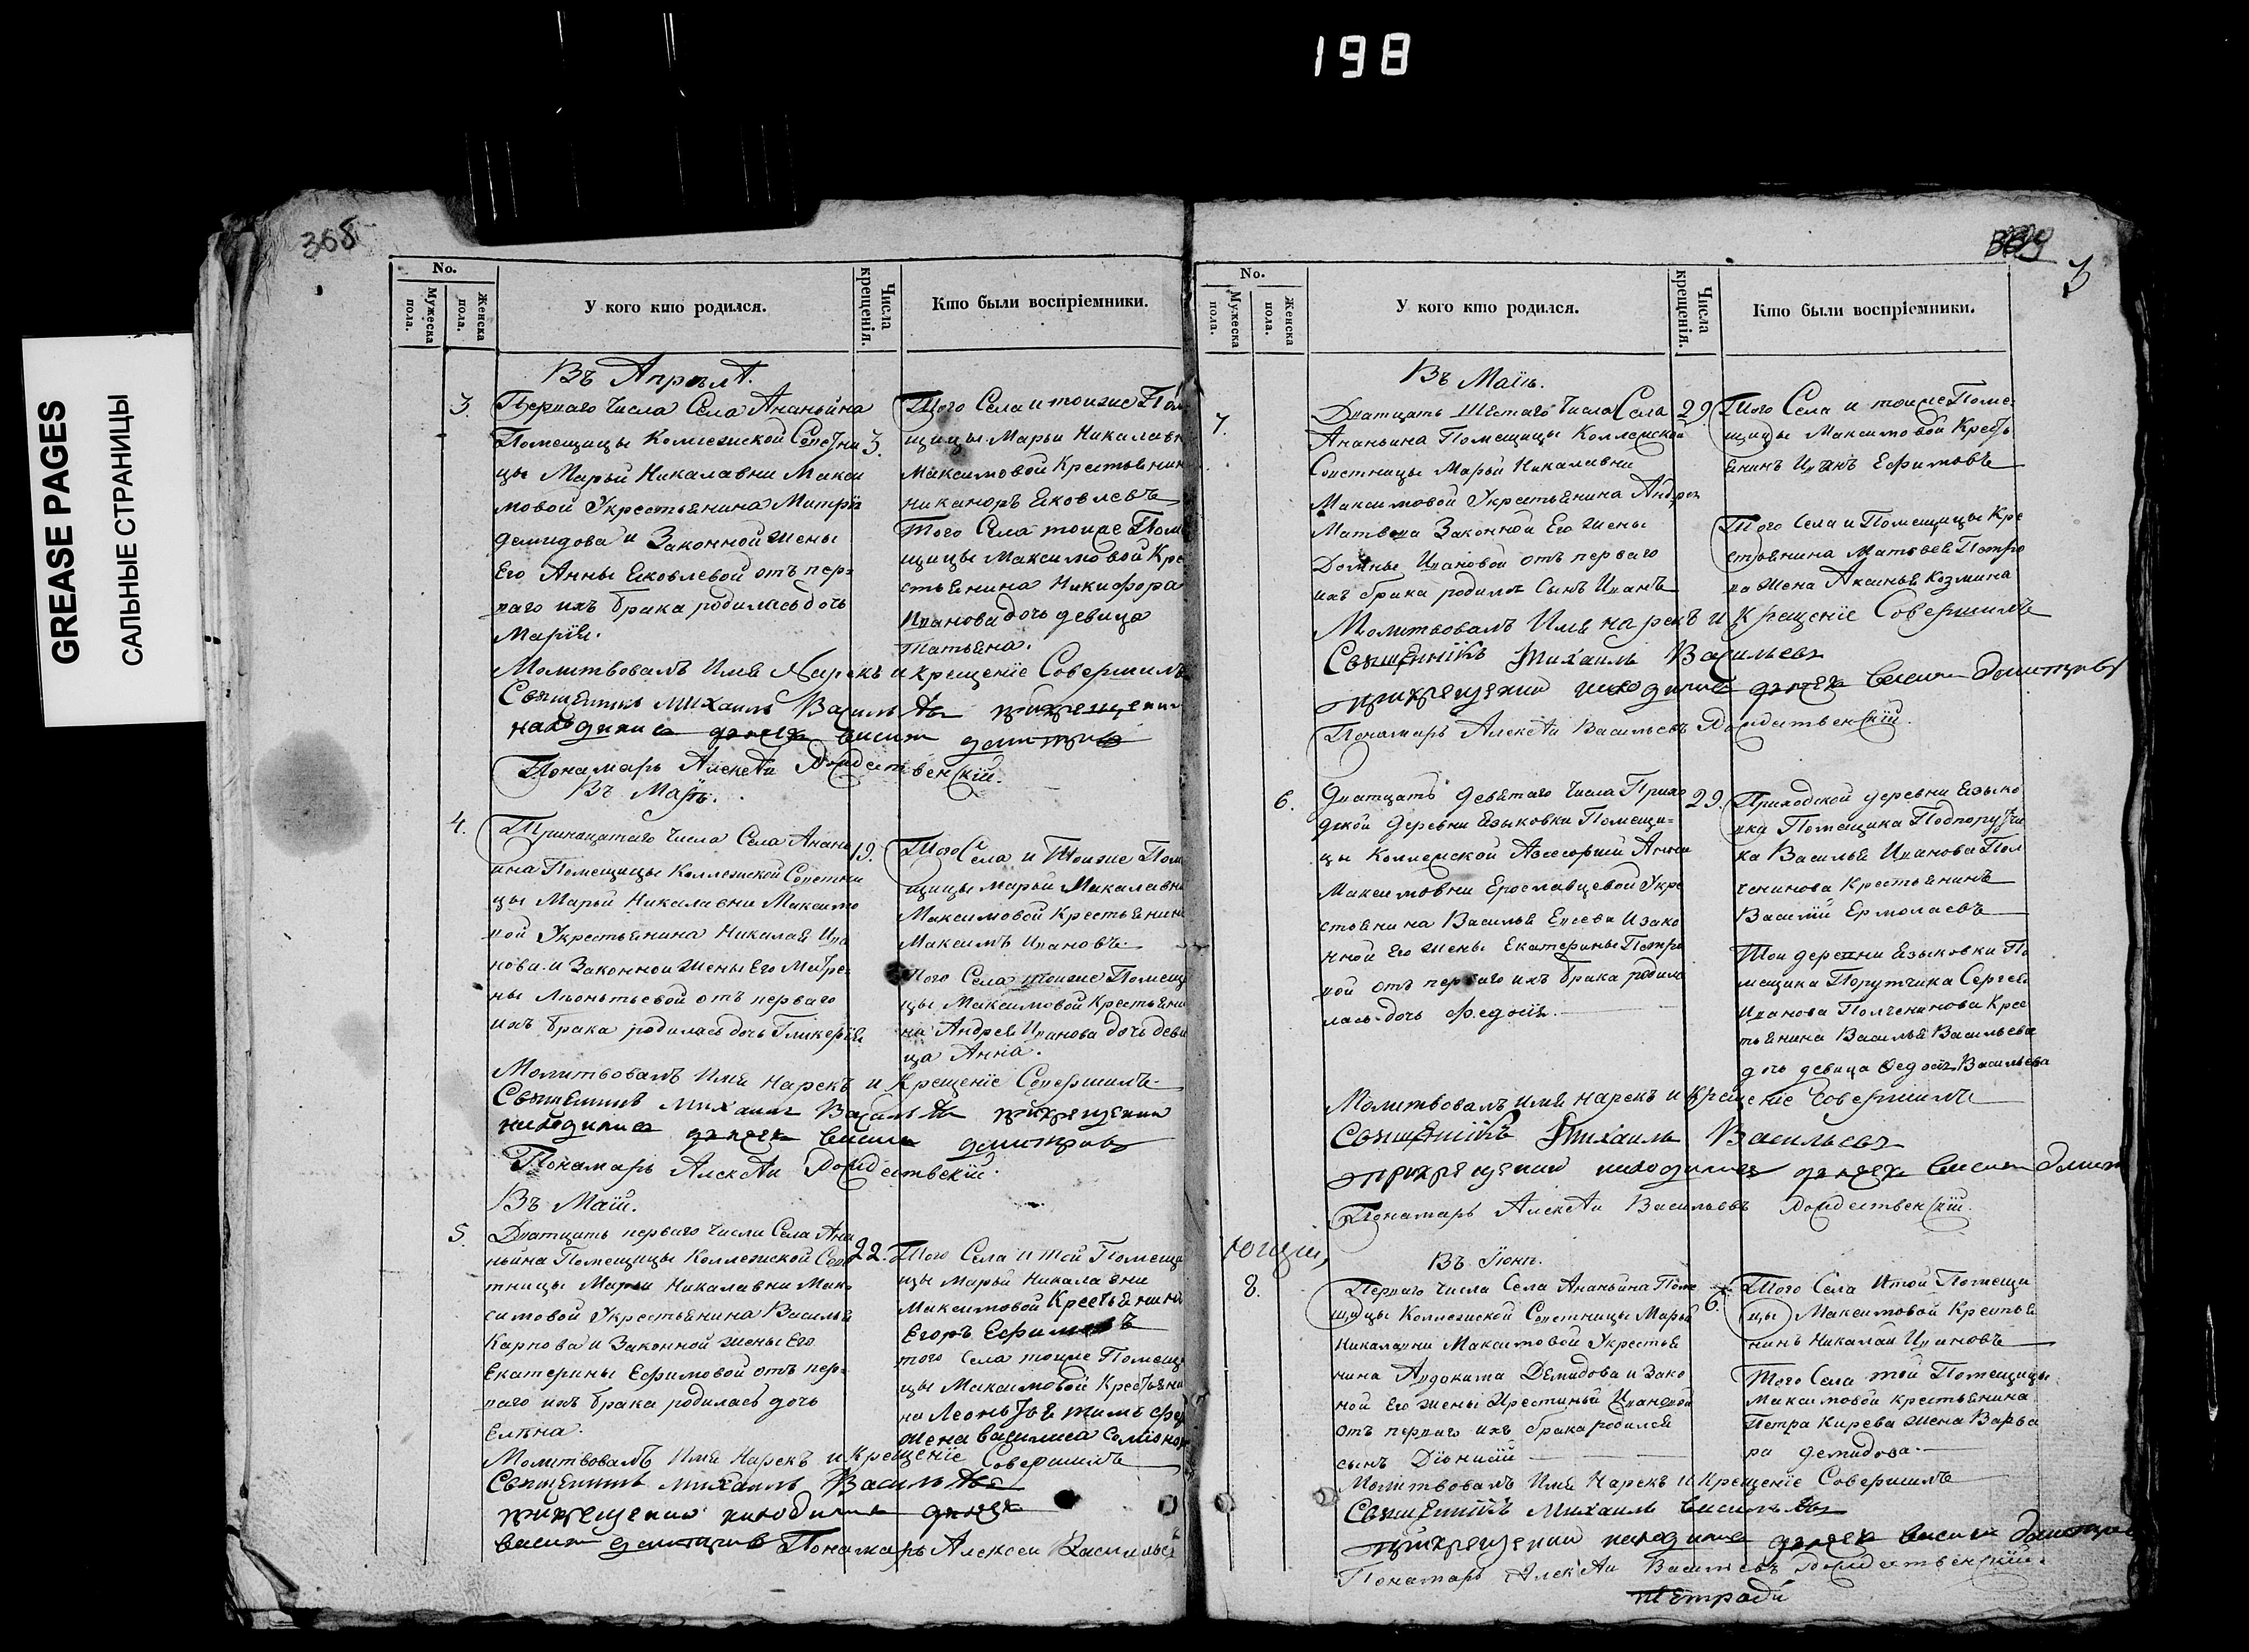 198
GREASE PAGES
САЛЬНЫЕ СТРАНИЦЫ
368
No.
Мужеска пола.
Женска пола.
У кого кто родился.
Числа крещенія.
Кто были воспріемники.
Въ Апрѣлѣ.
3.
Перваго числа Села Ананьина
Помещицы Колежской Советни
цы Марьи Никалавни Макси
мовой Укрестьянина Митрія
демидова и Законной жены
Его Анны Яковлевой отъ пер=
ваго ихъ брака родилась дочь
Марія.
3.
Того Села и тоиже Пом
щицы Марьи Никалавн
Максимовой Крестьянин
никаноръ Яковлевъ
Того Села тоиже Поме
щицы Максимовой Кре
стьянина Никифора
Иванова дочь девица
татьяна.
Молитвовалъ Имя Нарекъ и крещеніе Совершилъ
Священникъ Михаилъ Васильевъ прикрещении
находился дьячекъ васили демитривъ
Понамарь Алексѣи Рождественскій.
Въ Маіѣ.
4.
Тринацатого числа Села Анань
ина Помещицы Коллежской Советни
цы Марьи Никалавни Максимо
вой Укрестьянина Никалая Ива
нова и Законной жены Его Матре
ны Леонтьевой отъ перваго
ихъ брака родилась дочь Гликерія.
19.
Того Села и Тоиже Пом
щицы Марьи Микалавни
Максимовой Крестьянин
Максимъ Ивановъ.
Того Села тоиже Помещи
цы Максимовой Крестьяни
на Андрея Иванова дочь деви
ца Анна.
Молитвовалъ Имя Нарекъ и Крещеніе Совершилъ
Священникъ Михаилъ Васильевъ прикрещении
находился дьячекъ васили демитривъ
Понамарь Алексѣи Рождествескій.
Въ Маіи.
5.
Дватцать перваго числа Села Ана
ньина Помещицы Коллежской Сове
тницы Марьи Никалавни Мак
симовой Укрестьянина Василья
Карпова и Законной жены Его
Екатерины Ефимовой отъ пер=
ваго ихъ брака родилась дочь
Елѣна.
22.
Того Села и той Помещи
цы Марьи Никалавни
Максимовой Крестьянин
Егоръ Ефимовъ
того Села тоиже Помещи
цы Максимовой Крестьяни
на Леонтья
жена василиса
Молитвовалъ Имя Нарекъ и Крещеніе Совершилъ
Священникъ Михаилъ Васильевъ
прикрещении находился дьячекъ
васили демитривъ Понамарь Алексеи Васильев
369
3
No.
Мужеска пола.
Женска пола.
У кого кто родился.
Числа крещенія.
Кто были воспріемники.
Въ Маіѣ.
7.
Дватцать Шестаго числа Села
Ананьина Помещицы Коллежской
Советницы Марьи Никалавни
Максимовой Укрестьянина Андрея
Матвева Законной Его жены
Домны Ивановой отъ перваго
ихъ брака родился Сынъ Иванъ
29.
Того Села и тоиже Поме
щицы Максимовой Кресть
янинъ Иванъ Ефимовъ
Того Села и Помещицы Кре
стьянина Матвея Петро
ва жена Аксинья Козмина
Молитвовалъ Имя нарекъ и Крещеніе Совершилъ
Священникъ Михаилъ Васильевъ
прикрещении находился дьячекъ васили Демитривъ
Понамарь Алексѣи Васильевъ Рождественскій.
6.
Дватцать девятаго числа Прихо
дской деревни Языковки Помещи=
цы Коллежской Асесорши Анны
Максимовни Ерославцевой Укре
стьянина Василья Евсева Изако
нной Его жены Екатерины Петро
вой отъ перваго ихъ брака родила
лась дочь Федосія.
29.
Приходской деревни Языко
вки Помещика Подпоручи
ка Василья Иванова Пол
ченинова Крестьянинъ
Василій Ермолаевъ
Тои деревни Языковки По
мещика Порутчика Сергея
Иванова Полченинова Крес
тьянина Василья Васильева
дочь девица Федосія Васильева
Молитвовалъ имя нарекъ и Крещеніе Совершилъ
Священникъ Михаилъ Васильевъ
прикрещении находился дьячекъ васили Демит
Понамарь Алексѣи Васильевъ Рождественскій.
Въ Іюнѣ.
8.
Перваго числа Села Ананьина Поме
щицы Коллежской Советницы Марьи
Никалавни Максимовой Укрестья
нина Авдокима Демидова и Зако
ной Его жены Хрестиньи Ивановой
отъ перваго ихъ брака родился
сынъ Діонисій
6.
Того Села Итой Помещи
цы Максимовой Крестья
нинъ Никалаи Ивановъ
Того Села той Помещицы
Максимовой крестьянина
Петра Кирева жена Варва
ра демидова.
Молитвовалъ Имя Нарекъ и Крещеніе Совершилъ
Священникъ Михаилъ Васильевъ
прикрещении находился дьячекъ васили Дмитрев
Понамарь Алексѣи Васильевъ Рождественскій.
тетради